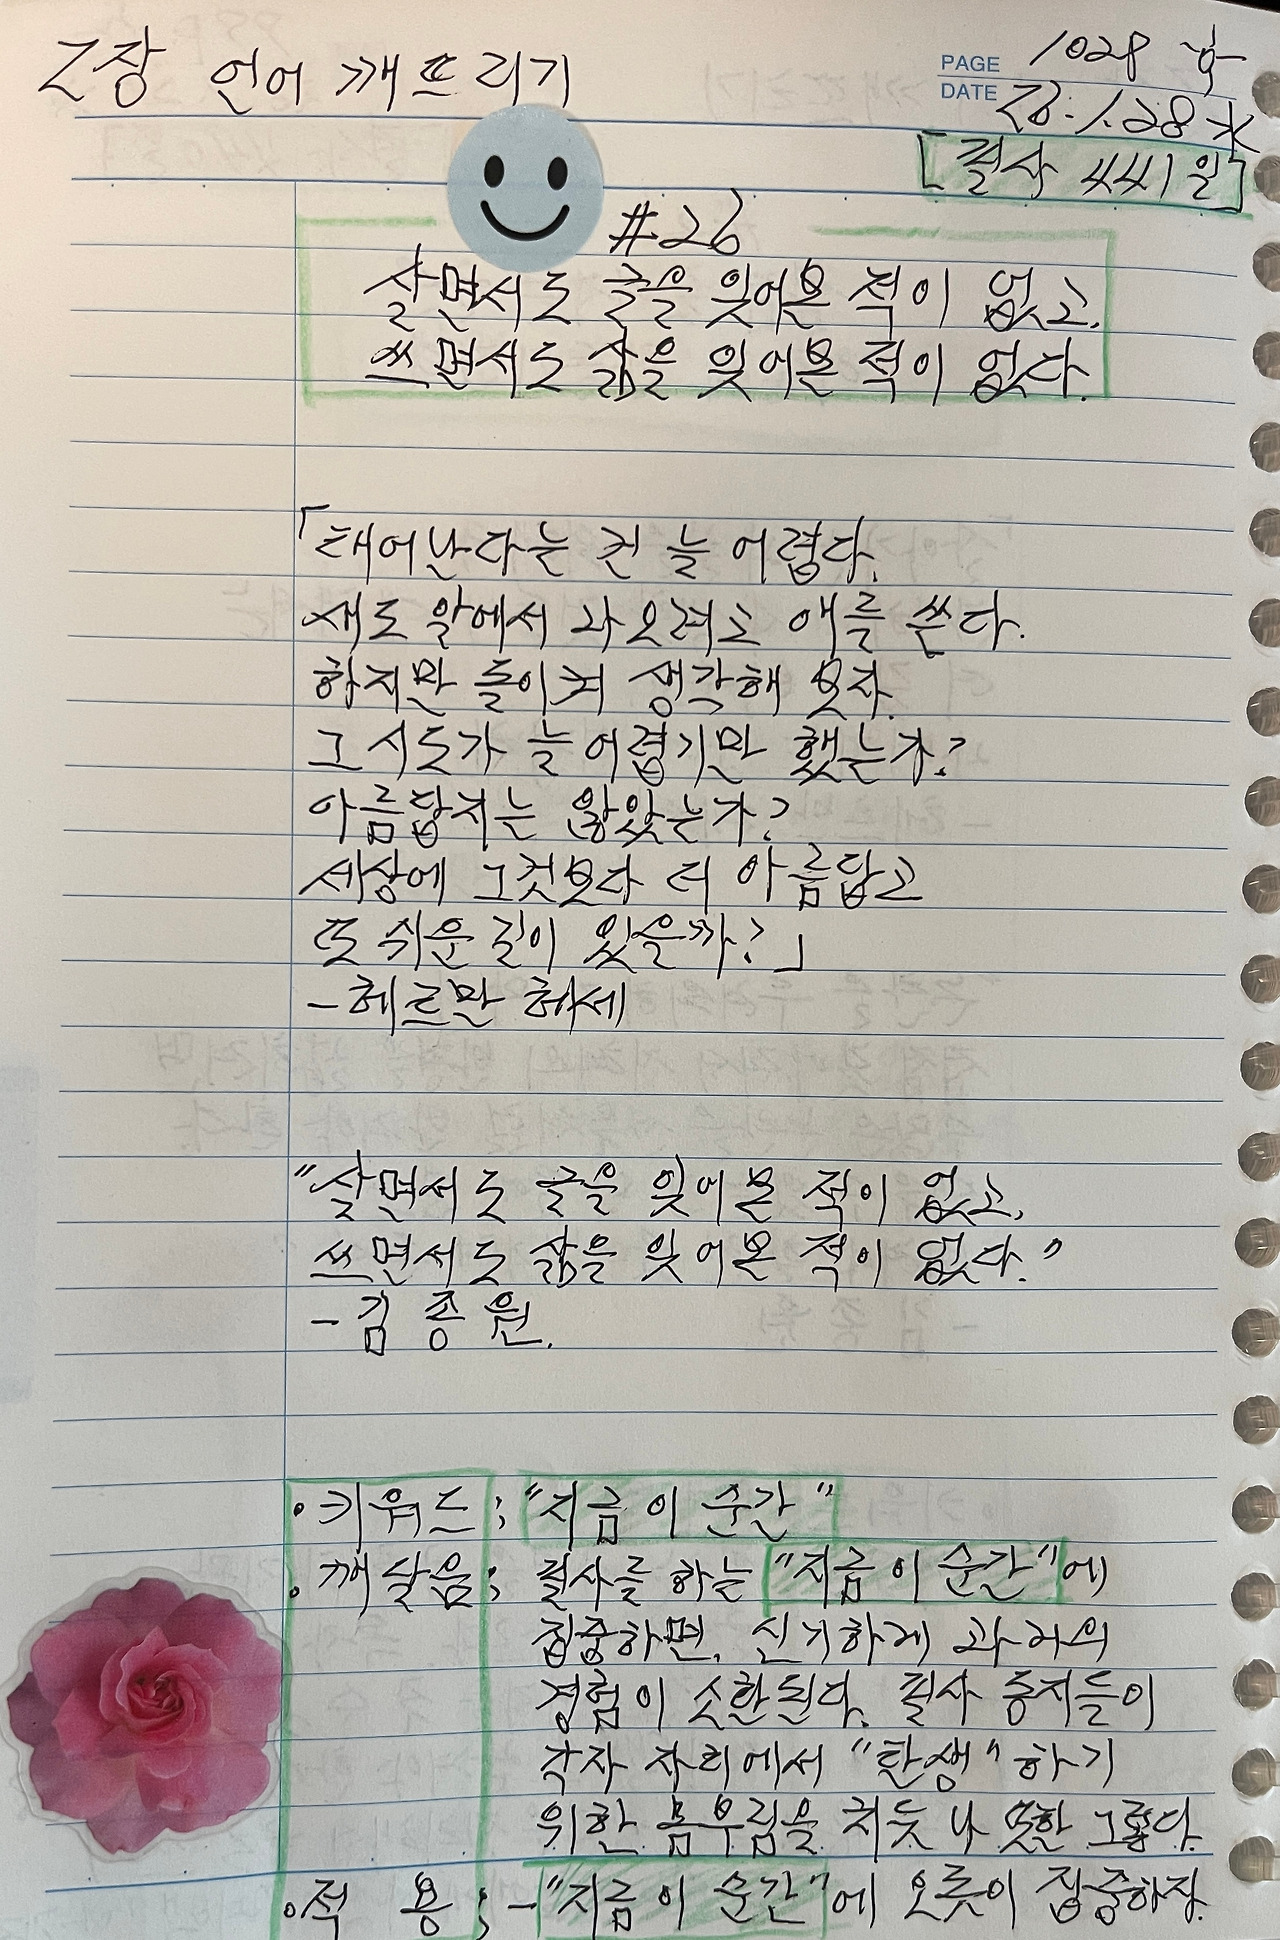 2장 언어 깨뜨리기
PAGE 1028 日
DATE 26.1.28 水
[필사 441일]
#26
살면서도 글을 잊어본 적이 없고,
쓰면서도 삶을 잊어본 적이 없다.
「태어난다는 건 늘 어렵다.
새도 알에서 나오려고 애를 쓴다.
하지만 돌이켜 생각해 보자.
그 시도가 늘 어렵기만 했는가?
아름답지는 않았는가?
세상에 그것보다 더 아름답고
또 쉬운 길이 있을까?」
-헤르만 헤세
"살면서도 글을 잊어본 적이 없고,
쓰면서도 삶을 잊어본 적이 없다."
-김종원.
•키워드; "지금 이 순간"
•깨달음; 필사를 하는 "지금 이 순간"에
집중하면, 신기하게 과거의
경험이 소환된다. 필사 동지들이
각자 자리에서 "탄생"하기
위한 몸부림을 치듯 나 또한 그렇다.
•적 용; -"지금 이 순간"에 오롯이 집중하자.